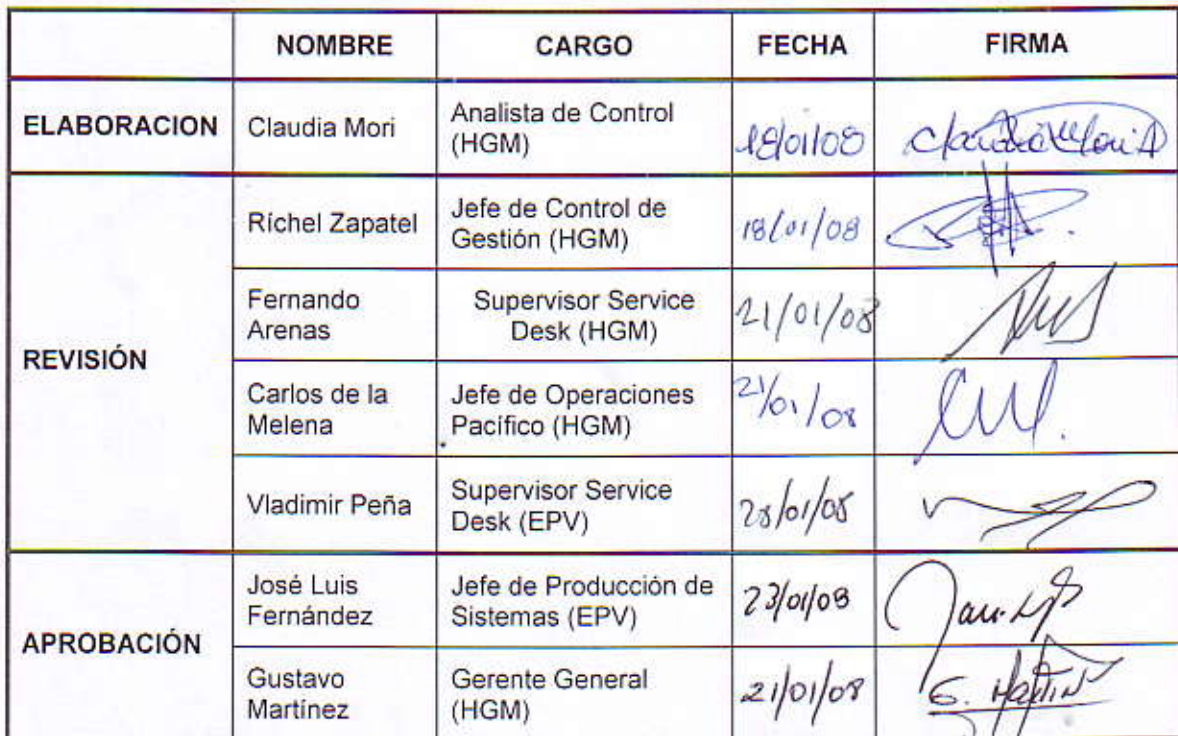 NOMBRE CARGO FECHA FIRMA
ELABORACION Claudia Mori Analista de Control (HGM) 18/01/08 Claudia Mori A
REVISIÓN
Ríchel Zapatel Jefe de Control de Gestión (HGM) 18/01/08
Fernando Arenas Supervisor Service Desk (HGM) 21/01/08
Carlos de la Melena Jefe de Operaciones Pacífico (HGM) 21/01/08
Vladimir Peña Supervisor Service Desk (EPV)
APROBACIÓN
José Luis Fernández Jefe de Producción de Sistemas (EPV) 23/01/08
Gustavo Martínez Gerente General (HGM) 21/01/08 G. Martinez